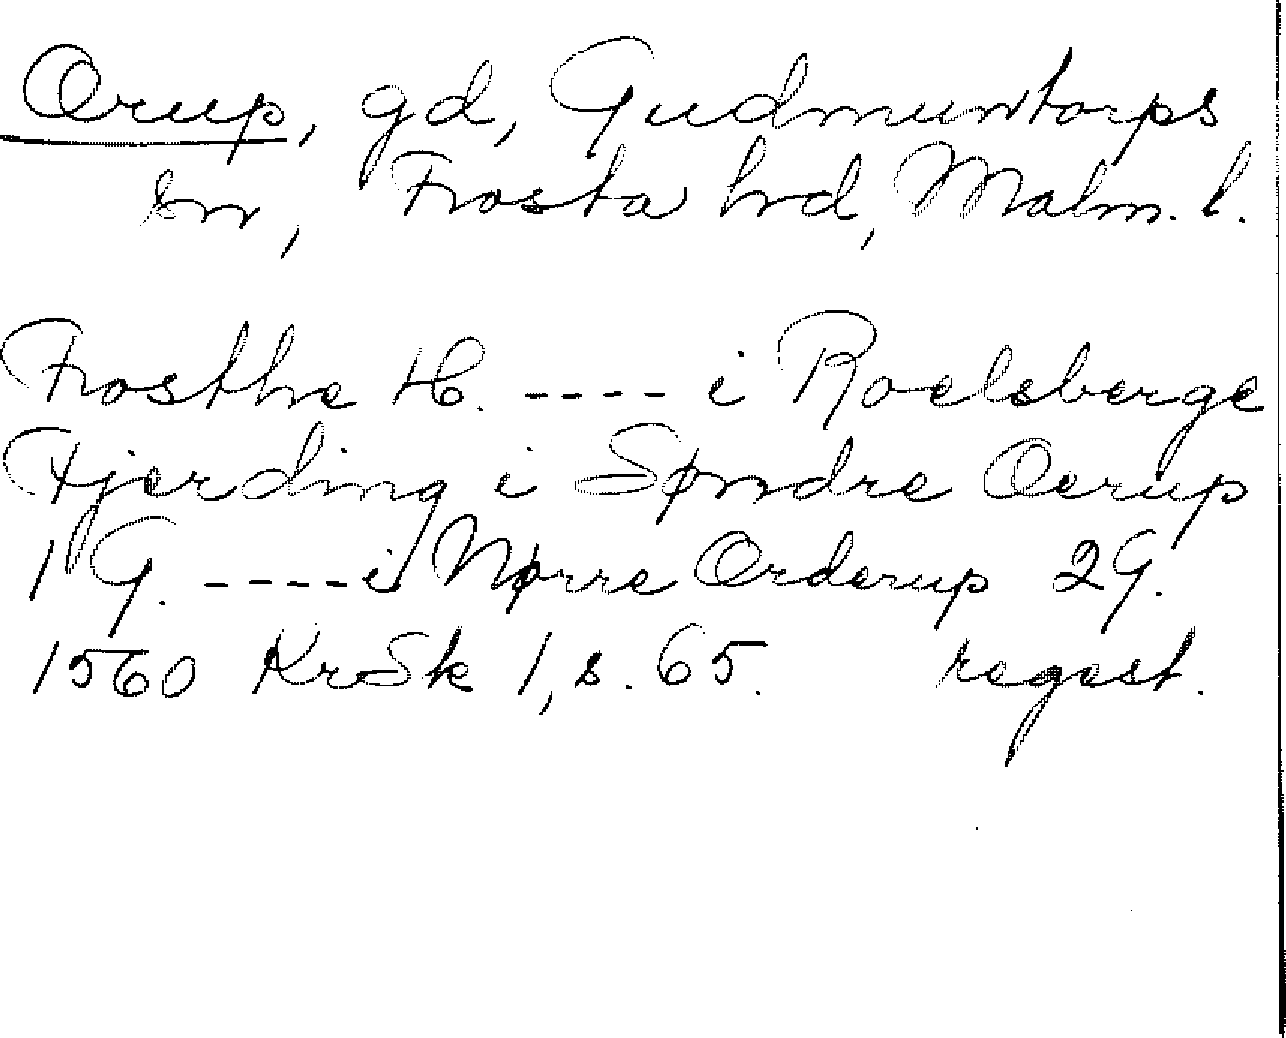 Orup, gd, Gudmuntorps
sn, Frosta hrd, Malm. l.
Frosthe H. ---- i Roelsberge
Fjerding i Søndre Oerup
1 G. ---- i Nørre Orderup 2 G.
1560 KrSk 1, s. 65. regest.